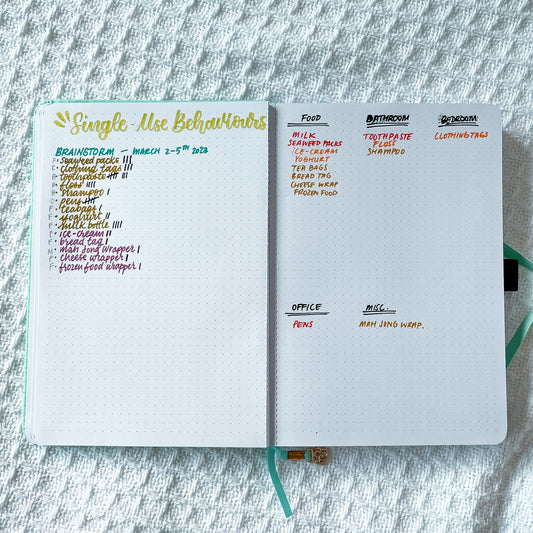 Single-Use Behaviours
BRAINSTORM - MARCH 2-5TH 2023
F • seaweed packs |||
B • clothing tags |||
B • toothpaste |||| ||
B • floss ||||
B • shampoo |
O • pens ||||
F • teabags |
F • yoghurt ||
F • milk bottle ||||
F • ice-cream ||
F • bread tag |
M • mah jong wrapper |
F • cheese wrapper |
F • frozen food wrapper |
FOOD
MILK
SEAWEED PACKS
ICE-CREAM
YOGHURT
TEA BAGS
BREAD TAG
CHEESE WRAP
FROZEN FOOD
BATHROOM
TOOTHPASTE
FLOSS
SHAMPOO
BEDROOM
CLOTHING TAGS
OFFICE
PENS
MISC.
MAH JONG WRAP.